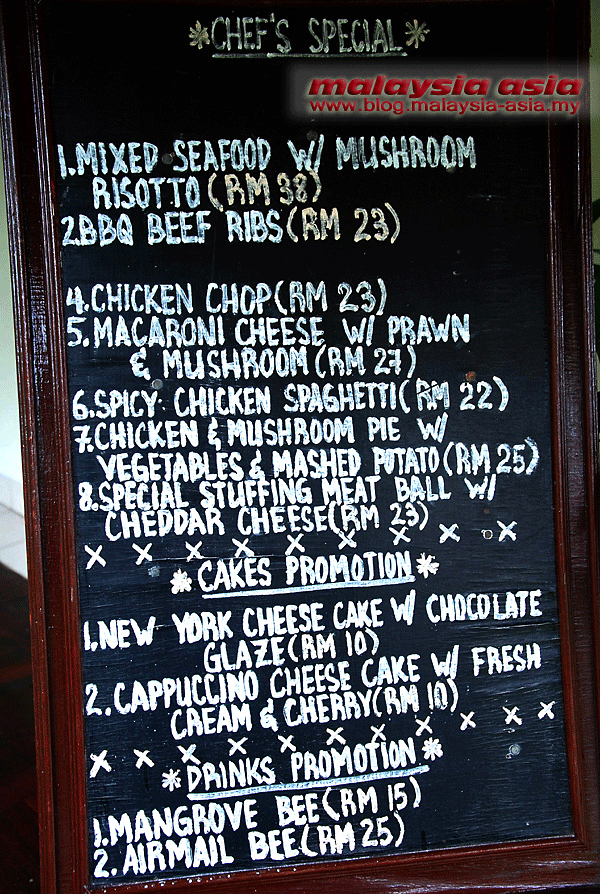 *CHEF'S SPECIAL*
malaysia asia
www.blog.malaysia-asia.my
1.MIXED SEAFOOD W/ MUSHROOM
RISOTTO (RM 38)
2.BBQ BEEF RIBS (RM 23)
4.CHICKEN CHOP (RM 23)
5.MACARONI CHEESE W/ PRAWN
& MUSHROOM (RM 27)
6.SPICY CHICKEN SPAGHETTI (RM 22)
7.CHICKEN & MUSHROOM PIE W/
VEGETABLES & MASHED POTATO (RM 25)
8.SPECIAL STUFFING MEAT BALL W/
CHEDDAR CHEESE (RM 23)
x x x x x x x x x
*CAKES PROMOTION*
1.NEW YORK CHEESE CAKE W/ CHOCOLATE
GLAZE (RM 10)
2.CAPPUCCINO CHEESE CAKE W/ FRESH
CREAM & CHERRY (RM 10)
x x x x x x x x x x x
*DRINKS PROMOTION*
1.MANGROVE BEE (RM 15)
2.AIRMAIL BEE (RM 25)